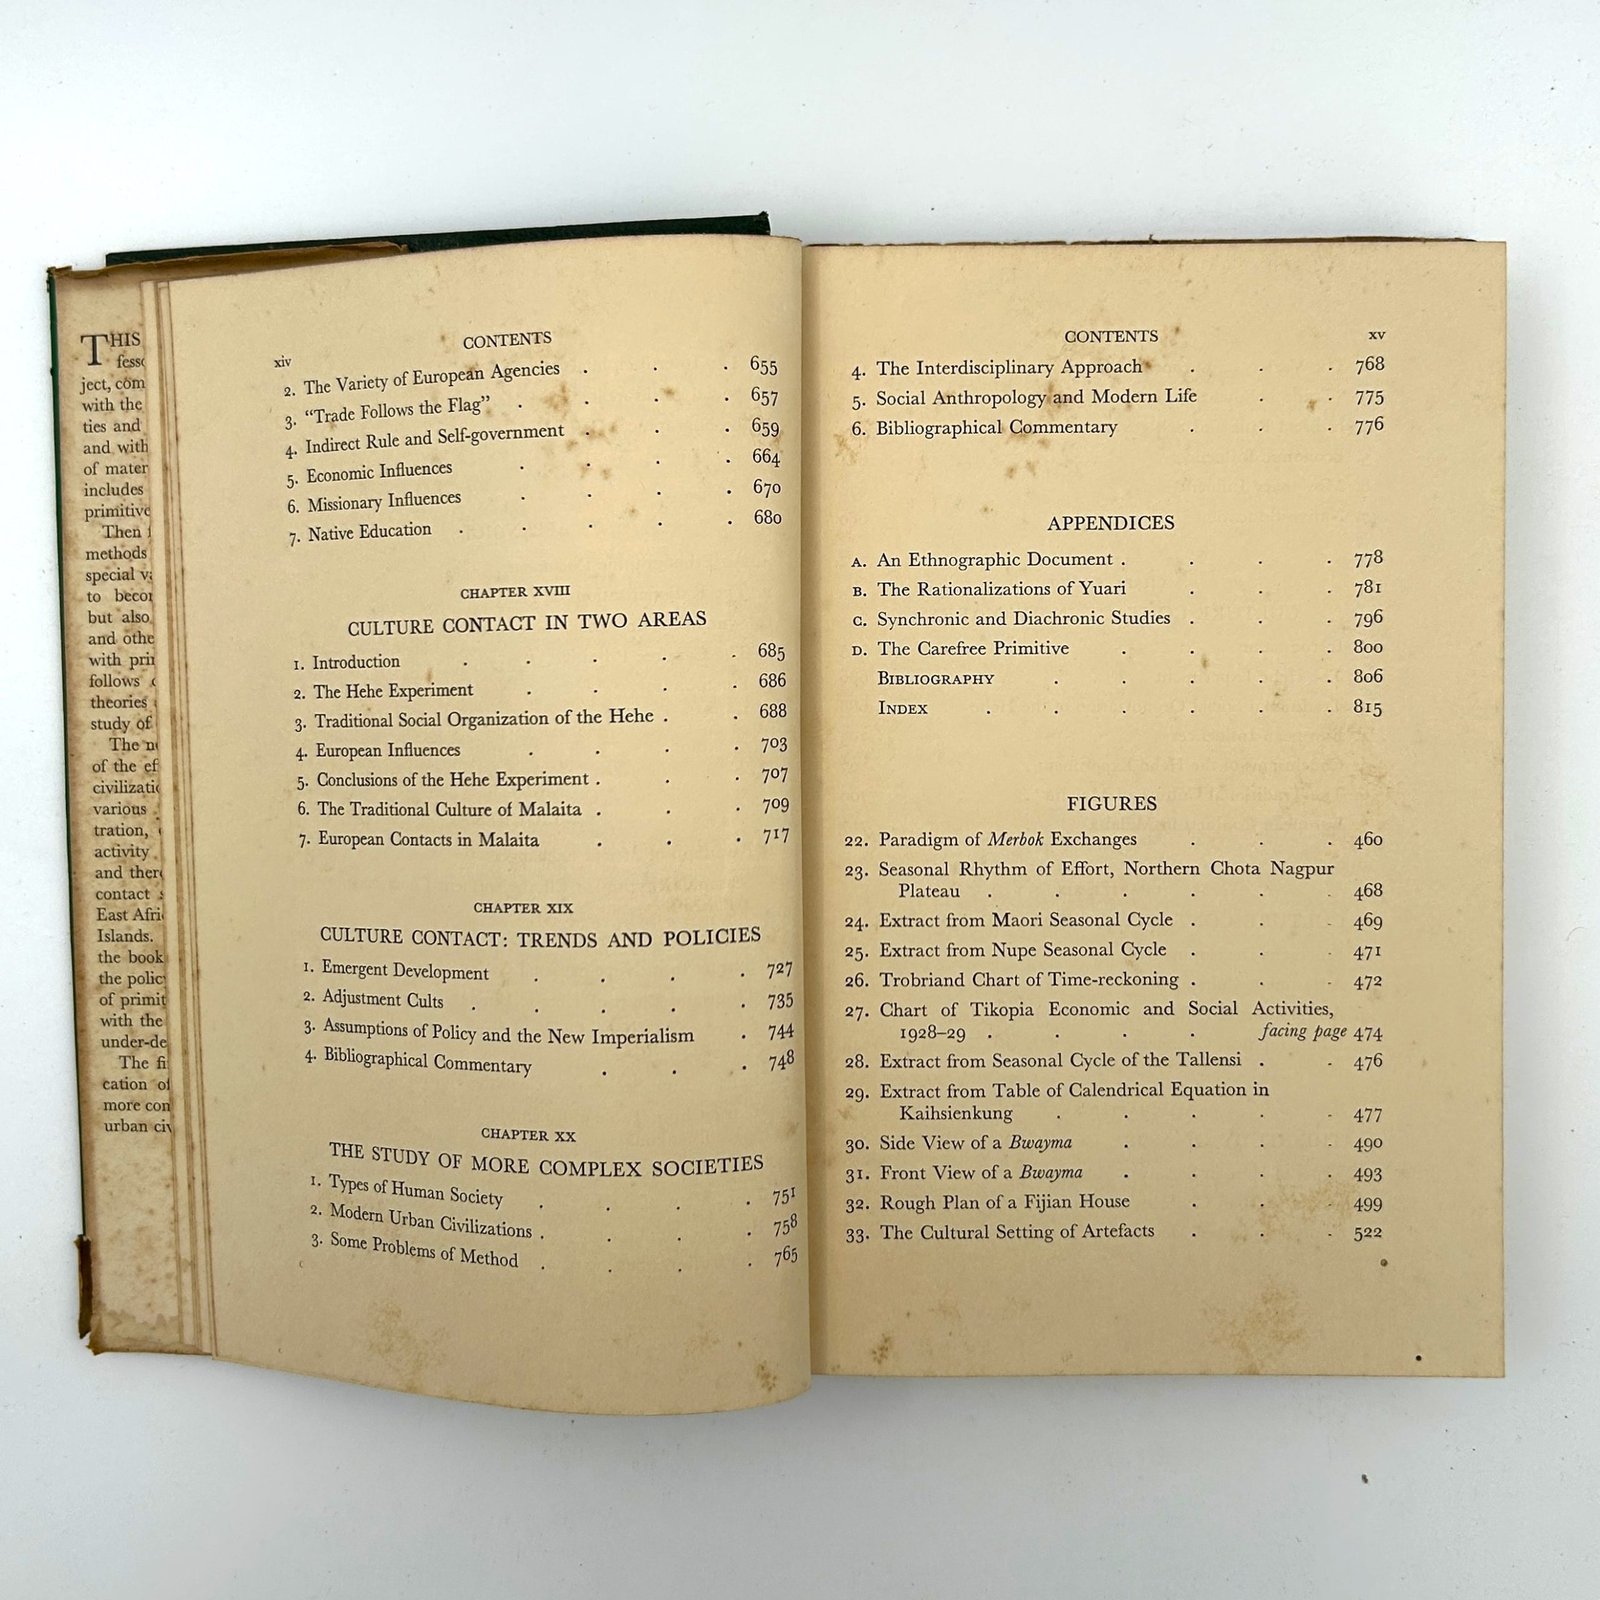 THIS
ject, com
with the
ties and
and with
of mater
includes
primitive
Then
methods
special
to
but also
and othe
with
follows
theories
study of
The
of the
various
activity
and
contact
East
Islands.
the book
the
of
with the
The
more
urban
CONTENTS
xiv
2. The Variety of European Agencies . . . 655
3. "Trade Follows the Flag" . . . . 657
4. Indirect Rule and Self-government . . . 659
5. Economic Influences . . . . 664
6. Missionary Influences . . . . 670
7. Native Education . . . . . 680
CHAPTER XVIII
CULTURE CONTACT IN TWO AREAS
1. Introduction . . . . . 685
2. The Hehe Experiment . . . . 686
3. Traditional Social Organization of the Hehe . . 688
4. European Influences . . . . 703
5. Conclusions of the Hehe Experiment . . . 707
6. The Traditional Culture of Malaita . . . 709
7. European Contacts in Malaita . . . 717
CHAPTER XIX
CULTURE CONTACT: TRENDS AND POLICIES
1. Emergent Development . . . . 727
2. Adjustment Cults . . . . . 735
3. Assumptions of Policy and the New Imperialism . 744
4. Bibliographical Commentary . . . 748
CHAPTER XX
THE STUDY OF MORE COMPLEX SOCIETIES
1. Types of Human Society . . . . 751
2. Modern Urban Civilizations . . . . 758
3. Some Problems of Method . . . . 765
CONTENTS xv
4. The Interdisciplinary Approach . . . 768
5. Social Anthropology and Modern Life . . 775
6. Bibliographical Commentary . . . 776
APPENDICES
A. An Ethnographic Document . . . . 778
B. The Rationalizations of Yuari . . . 781
C. Synchronic and Diachronic Studies . . . 796
D. The Carefree Primitive . . . . 800
BIBLIOGRAPHY . . . . . 806
INDEX . . . . . . 815
FIGURES
22. Paradigm of Merbok Exchanges . . . 460
23. Seasonal Rhythm of Effort, Northern Chota Nagpur
Plateau . . . . . . 468
24. Extract from Maori Seasonal Cycle . . . 469
25. Extract from Nupe Seasonal Cycle . . . 471
26. Trobriand Chart of Time-reckoning . . . 472
27. Chart of Tikopia Economic and Social Activities,
1928–29 . . . . facing page 474
28. Extract from Seasonal Cycle of the Tallensi . . 476
29. Extract from Table of Calendrical Equation in
Kaihsienkung . . . . . 477
30. Side View of a Bwayma . . . . 490
31. Front View of a Bwayma . . . . 493
32. Rough Plan of a Fijian House . . . 499
33. The Cultural Setting of Artefacts . . . 522